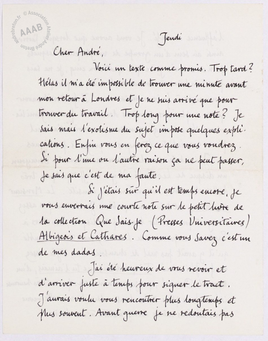 AAAB
Jeudi
Cher André,
Voici un texte comme promis. Trop tard?
Hélas il m'a été impossible de trouver une minute avant
mon retour à Londres et je ne suis arrivé que pour
trouver du travail. Trop long pour une note? Je
sais mais l'exotisme du sujet impose quelques expli-
cations. Enfin vous en ferez ce que vous voudrez.
Si pour l'une ou l'autre raison ça ne peut passer,
je sais que c'est de ma faute.
Si j'étais sûr qu'il est temps encore, je
vous enverrais une courte note sur le petit livre de
la collection Que Sais-je (Presses Universitaires)
Albigeois et Cathares. Comme vous savez c'est un
de mes dadas.
J'ai été heureux de vous revoir et
d'arriver juste à temps pour signer le tract.
J'aurais voulu vous rencontrer plus longtemps et
plus souvent. Avant guerre je ne redoutais pas